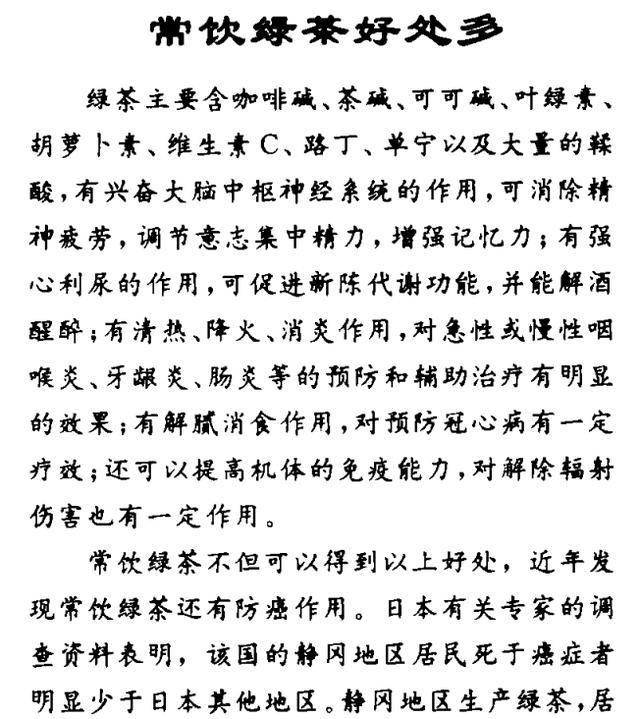 常饮绿茶好处多
绿茶主要含咖啡碱、茶碱、可可碱、叶绿素、
胡萝卜素、维生素C、路丁、单宁以及大量的鞣
酸，有兴奋大脑中枢神经系统的作用，可消除精
神疲劳，调节意志集中精力，增强记忆力；有强
心利尿的作用，可促进新陈代谢功能，并能解酒
醒醉；有清热、降火、消炎作用，对急性或慢性咽
喉炎、牙龈炎、肠炎等的预防和辅助治疗有明显
的效果；有解腻消食作用，对预防冠心病有一定
疗效；还可以提高机体的免疫能力，对解除辐射
伤害也有一定作用。
常饮绿茶不但可以得到以上好处，近年发
现常饮绿茶还有防癌作用。日本有关专家的调
查资料表明，该国的静冈地区居民死于癌症者
明显少于日本其他地区。静冈地区生产绿茶，居